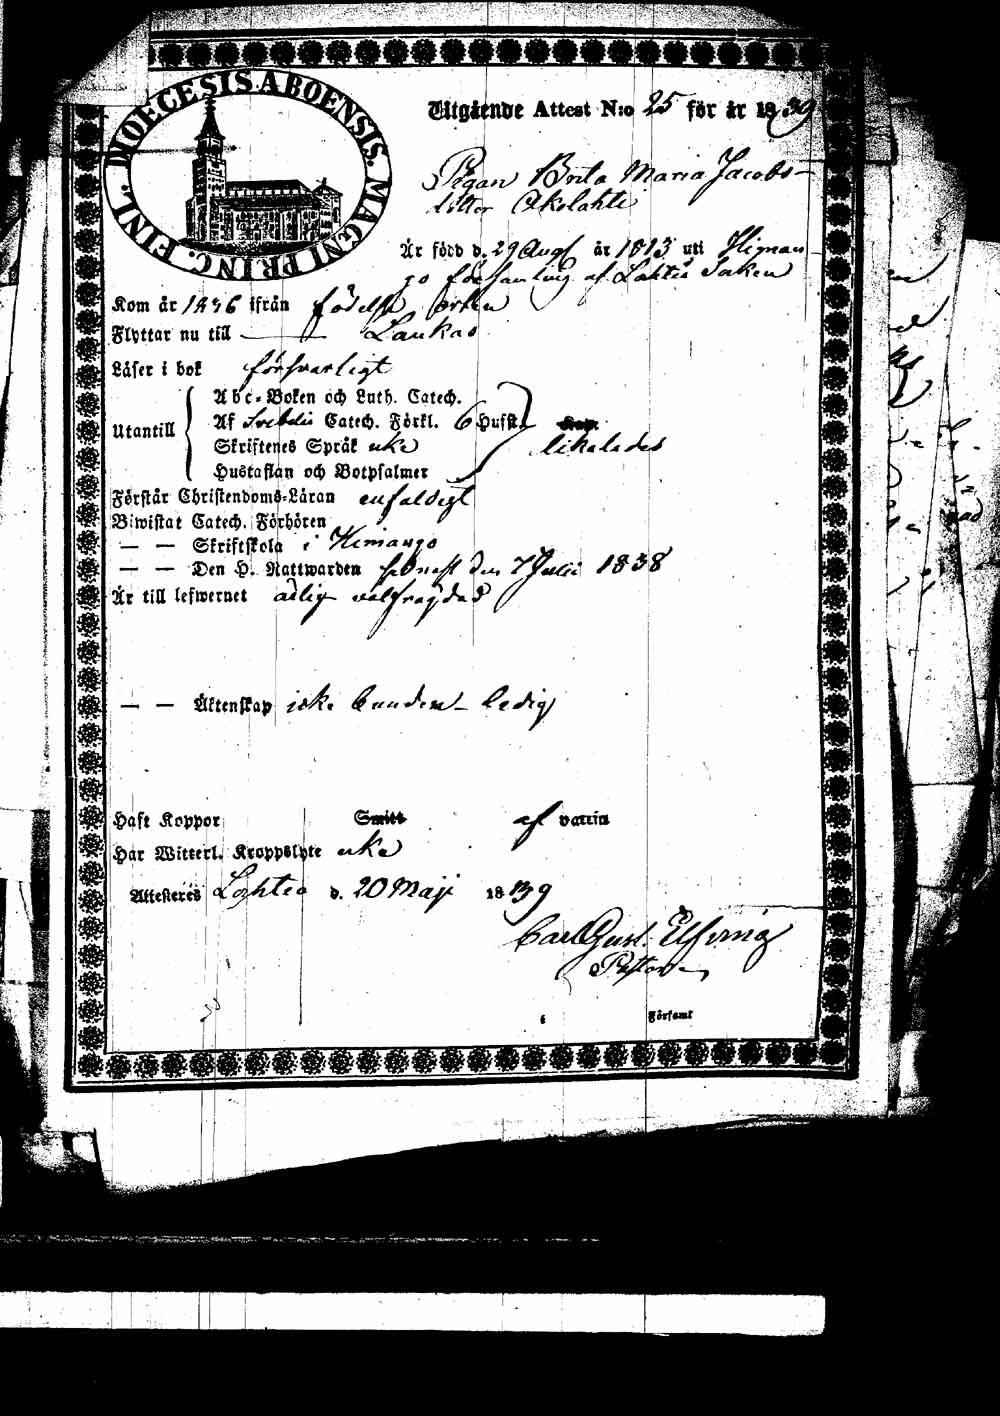 DIOECESIS ABOENSIS. MAGNI PRINC. FINL.
Utgående Attest N:o 25 för år 1839
Pigan Brita Maria Jacobs-
dotter Akolahti
Är född d. 29 Aug år 1813 uti Himan-
go församling af Lahtis Soken
Kom år 1836 ifrån födelse orten
Flyttar nu till Laukas
Läser i bok försvarligt
Utantill
Abc-Boken och Luth. Catech.
Af Svebelii Catech. Förkl. 6 Hufst. Kap.
Skriftenes Språk icke likaledes
Hustaflan och Botpsalmer
Förstår Christendoms-Läran enfaldigt
Biwistat Catech. Förhören
— — Skriftskola i Himango
— — Den H. Nattwarden senast den 7 Julii 1838
Är till lefwernet ärlig välfrägdad
— — Äktenskap icke bunden - ledig
Haft Koppor Smitt af vaccin
Har Witterl. Kroppslyte icke
Attesteres Lohteå d. 20 Maji 1839
Carl Gust. Elfving
Pastor
i Församl